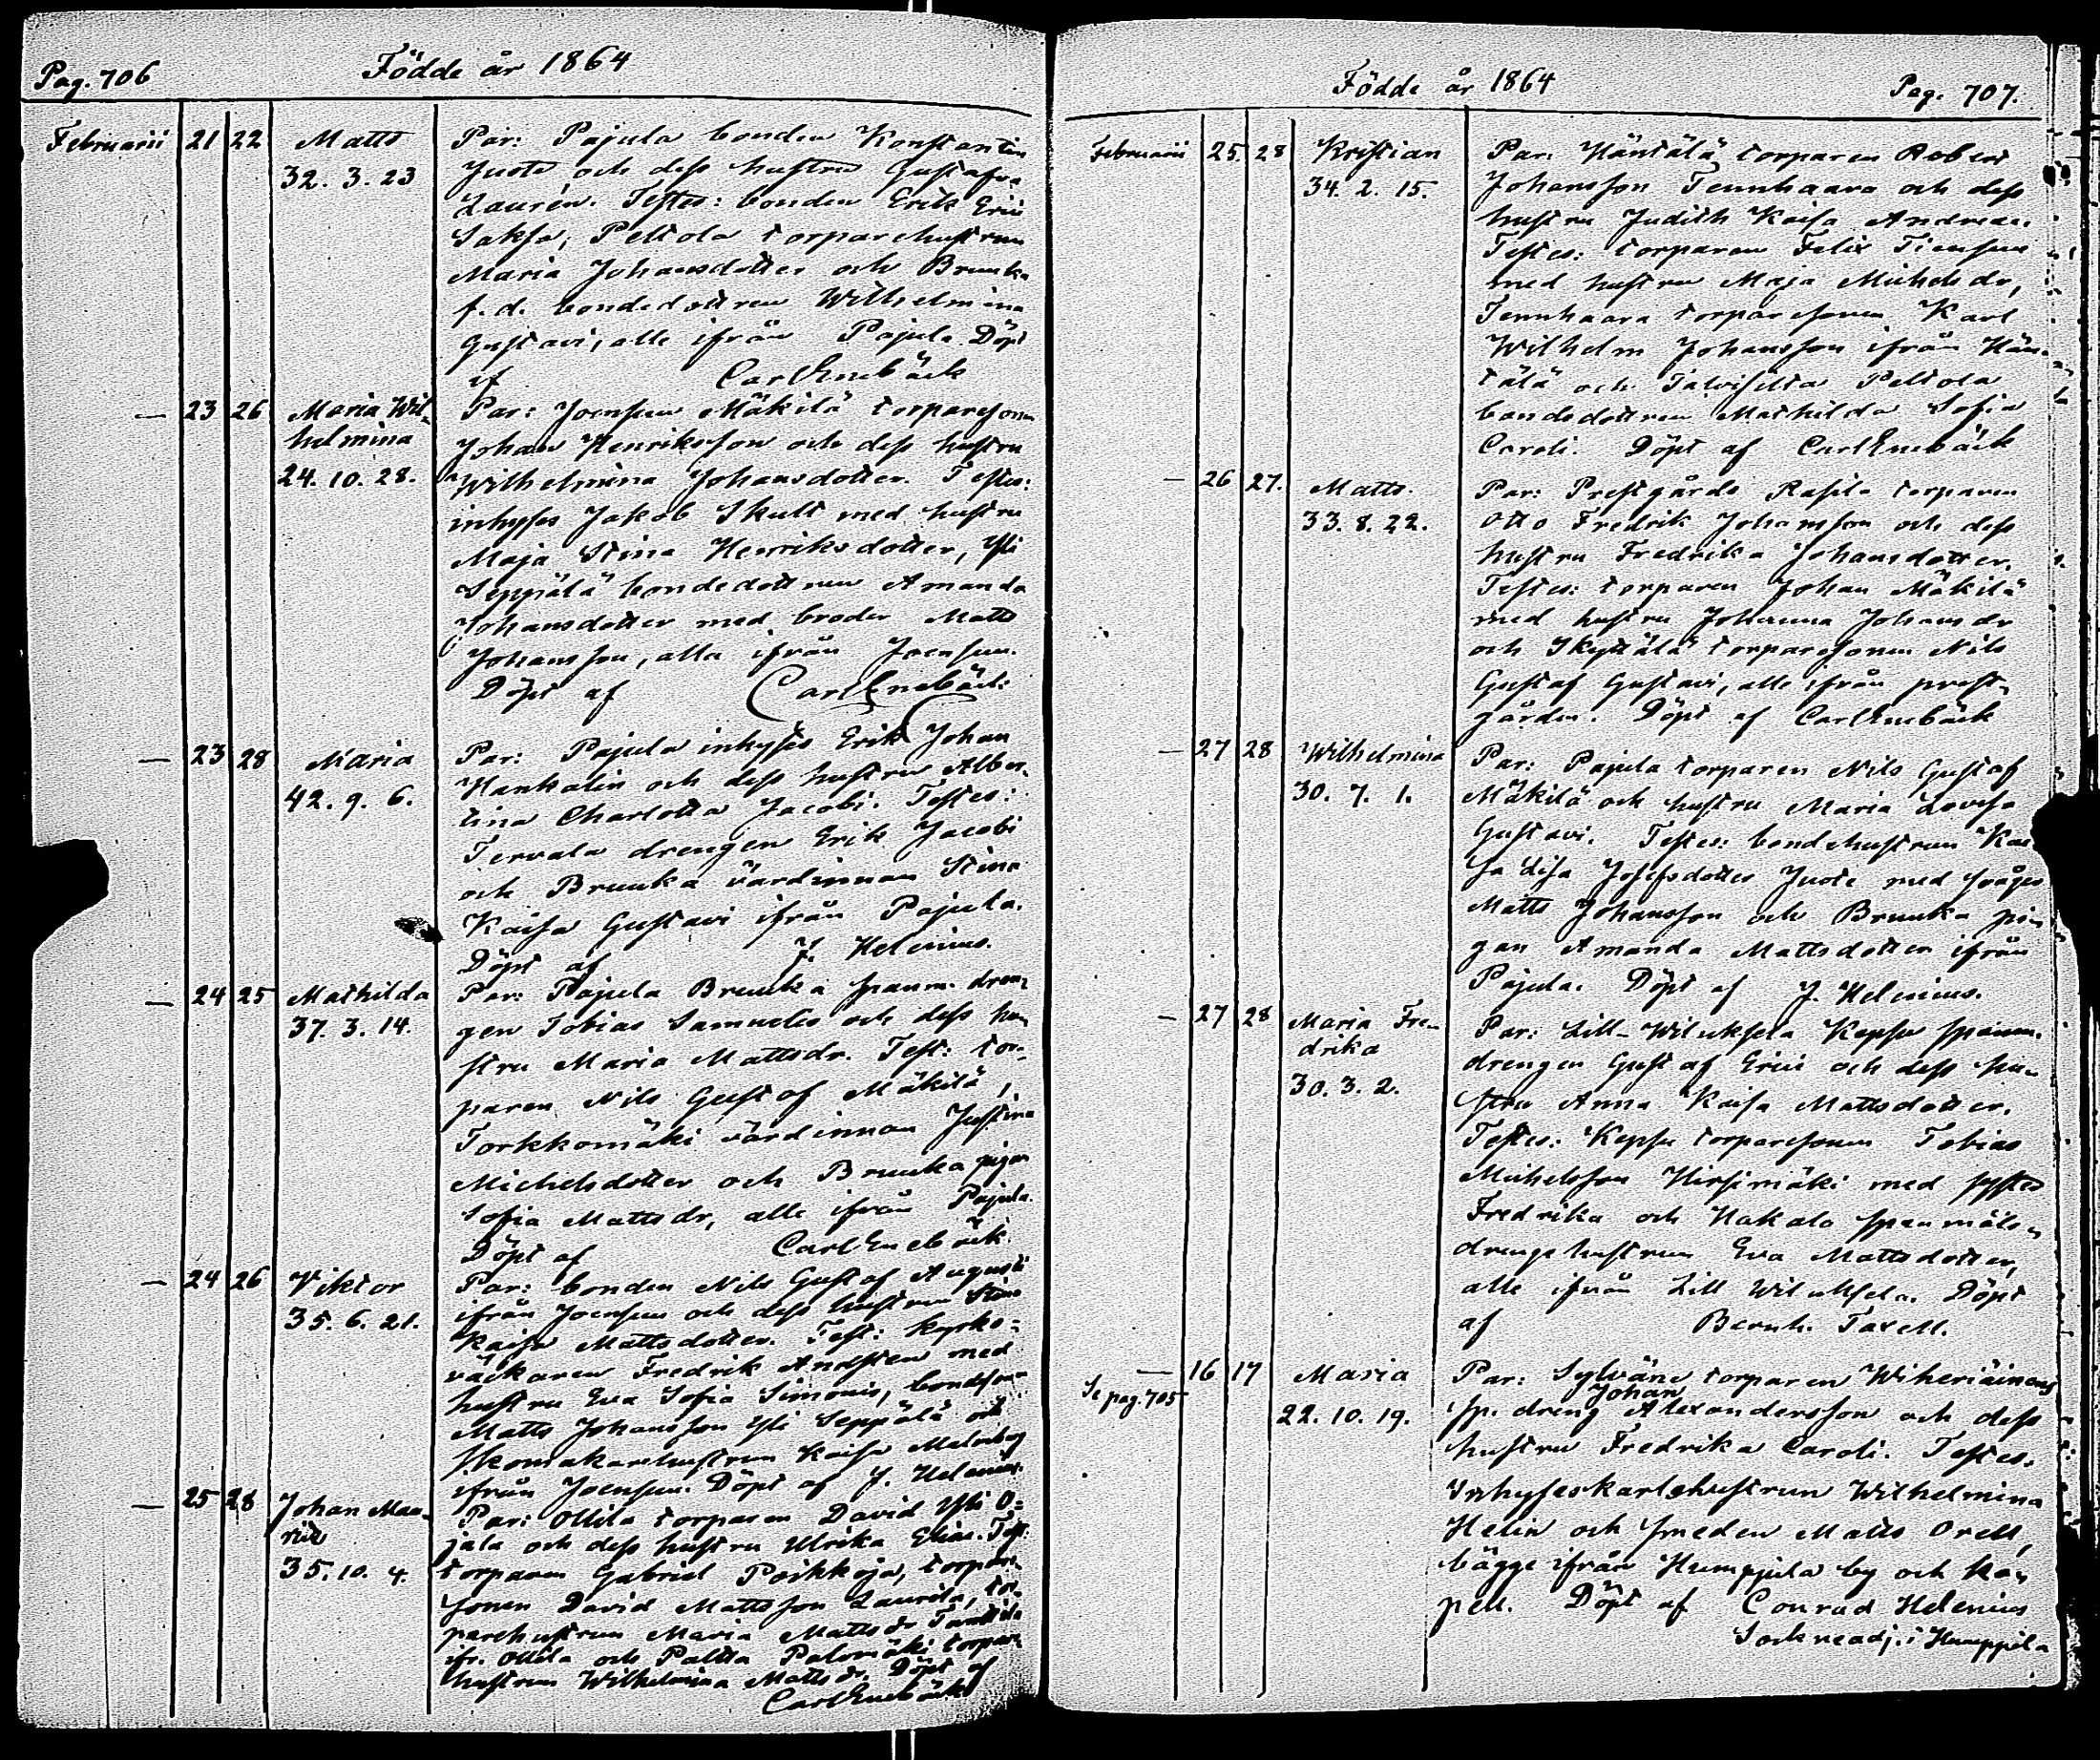 Pag. 706
Födde år 1864
Februarii 21 22 Matts
32. 3. 23
Par: Pajula bonden Konstantin
Juote och dess hustru Gustafva
Laurén. Testes: bonden Erik Erici
Saksa, Peltola torparehustrun
Maria Johansdotter och Bruuka
f.d. bondedottren Wilhelmina
Gustavi, alle ifrån Pajula. Döpt
af Carl Enebäck
— 23 26 Maria Wil-
helmina
24. 10. 28.
Par: Joensuu Mäkilä torparesonen
Johan Henriksson och dess hustru
Wilhelmina Johansdotter. Testes:
inhyses Jakob Skult med hustru
Maja Stina Henriksdotter, Yli
Seppälä bondedottren Amanda
Johansdotter med broder Matts
Johansson, alla ifrån Joensuu.
Döpt af Carl Enebäck
— 23 28 Maria
42. 9. 6.
Par: Pajula inhyses Erik Johan
Hankalin och dess hustru Alber-
tina Charlotta Jacobi. Testes:
Tervala drengen Erik Jacobi
och Bruuka värdinnan Stina
Kaisa Gustavi ifrån Pajula.
Döpt af J. Helenius.
— 24 25 Mathilda
37. 3. 14.
Par: Pajula Bruuka spanm. dren-
gen Tobias Samuelis och dess hu-
stru Maria Mattsdr. Test: tor-
paren Nils Gustaf Mäkilä,
Torkkomäki värdinnan Justina
Michelsdotter och Bruuka pigan
Sofia Mattsdr, alle ifrån Pajula.
Döpt af Carl Enebäck.
— 24 26 Viktor
35. 6. 21.
Par: bonden Nils Gustaf Augusti
ifrån Joensuu och dess hustru Stina
Kaisa Mattsdotter. Test: kyrko-
väktaren Fredrik Andsten med
hustru Eva Sofia Simonis, bondeson
Matts Johansson Yli Seppälä och
skomakarehustrun Kaisa Malmberg
ifrån Joensuu. Döpt af J. Helenius.
— 25 28 Johan Mau-
ritz
35. 10. 4.
Par: Ollila torparen David Yli O-
jala och dess hustru Ulrika Eliae. Test:
torparen Gabriel Poikkoja, torpare
sonen David Mattsson Laurila, tor-
parehustrun Maria Mattsdr
ifr. Ollila och Palta Palomäki torpare
hustrun Wilhelmina Mattsdr. Döpt af
Carl Enebäck
Födde år 1864
Pag. 707.
Februarii 25 28 Kristian
34. 2. 15.
Par: Häntälä torparen Robert
Johansson Tennhaara och dess
hustru Judith Kaisa Andreae.
Testes: torparen Felix Tiensuu
med hustru Maja Michelsdr,
Tennhaara torparesonen Karl
Wilhelm Johansson ifrån Hän-
tälä och Talvisilta Peltola
bondedottren Mathilda Sofia
Caroli. Döpt af Carl Enebäck
— 26 27. Matts.
33. 8. 22.
Par: Prestgårds Rasila torparen
Otto Fredrik Johansson och dess
hustru Fredrika Johansdotter.
Testes: torparen Johan Mäkilä
med hustru Johanna Johansdr
och Skyttälä torparesonen Nils
Gustaf Gustavi, alle ifrån prest-
gården. Döpt af Carl Enebäck
— 27 28 Wilhelmina
30. 7. 1.
Par: Pajula torparen Nils Gustaf
Mäkilä och hustru Maria Lovisa
Gustavi. Testes: bondehustrun Kai
sa Lisa Josefsdotter Juote med svåger
Matts Johansson och Bruuka pi-
gan Amanda Mattsdotter ifrån
Pajula. Döpt af J. Helenius.
— 27 28 Maria Fre-
drika
30. 3. 2.
Par: Lill-Wiluksela Keppo spanm.
drengen Gustaf Erici och dess hu-
stru Anna Kaisa Mattsdotter.
Testes: Keppo torparesonen Tobias
Michelsson Hirsimäki med syster
Fredrika och Hakala spanmåls-
drengshustrun Eva Mattsdotter,
alle ifrån Lill Wiluksela. Döpt
af Bernh. Taxell.
— 16 17 Maria
Se pag. 705
22. 10. 19.
Par: Sylväne torparen Wiheriäinens
Johan
sp. dreng Alexandersson och dess
hustru Fredrika Caroli. Testes.
Inhyseskarlshustrun Wilhelmina
Helin och smeden Matts Orell,
bägge ifrån Humppila by och ka-
pell. Döpt af Conrad Helenius
Sockneadj. i Humppila